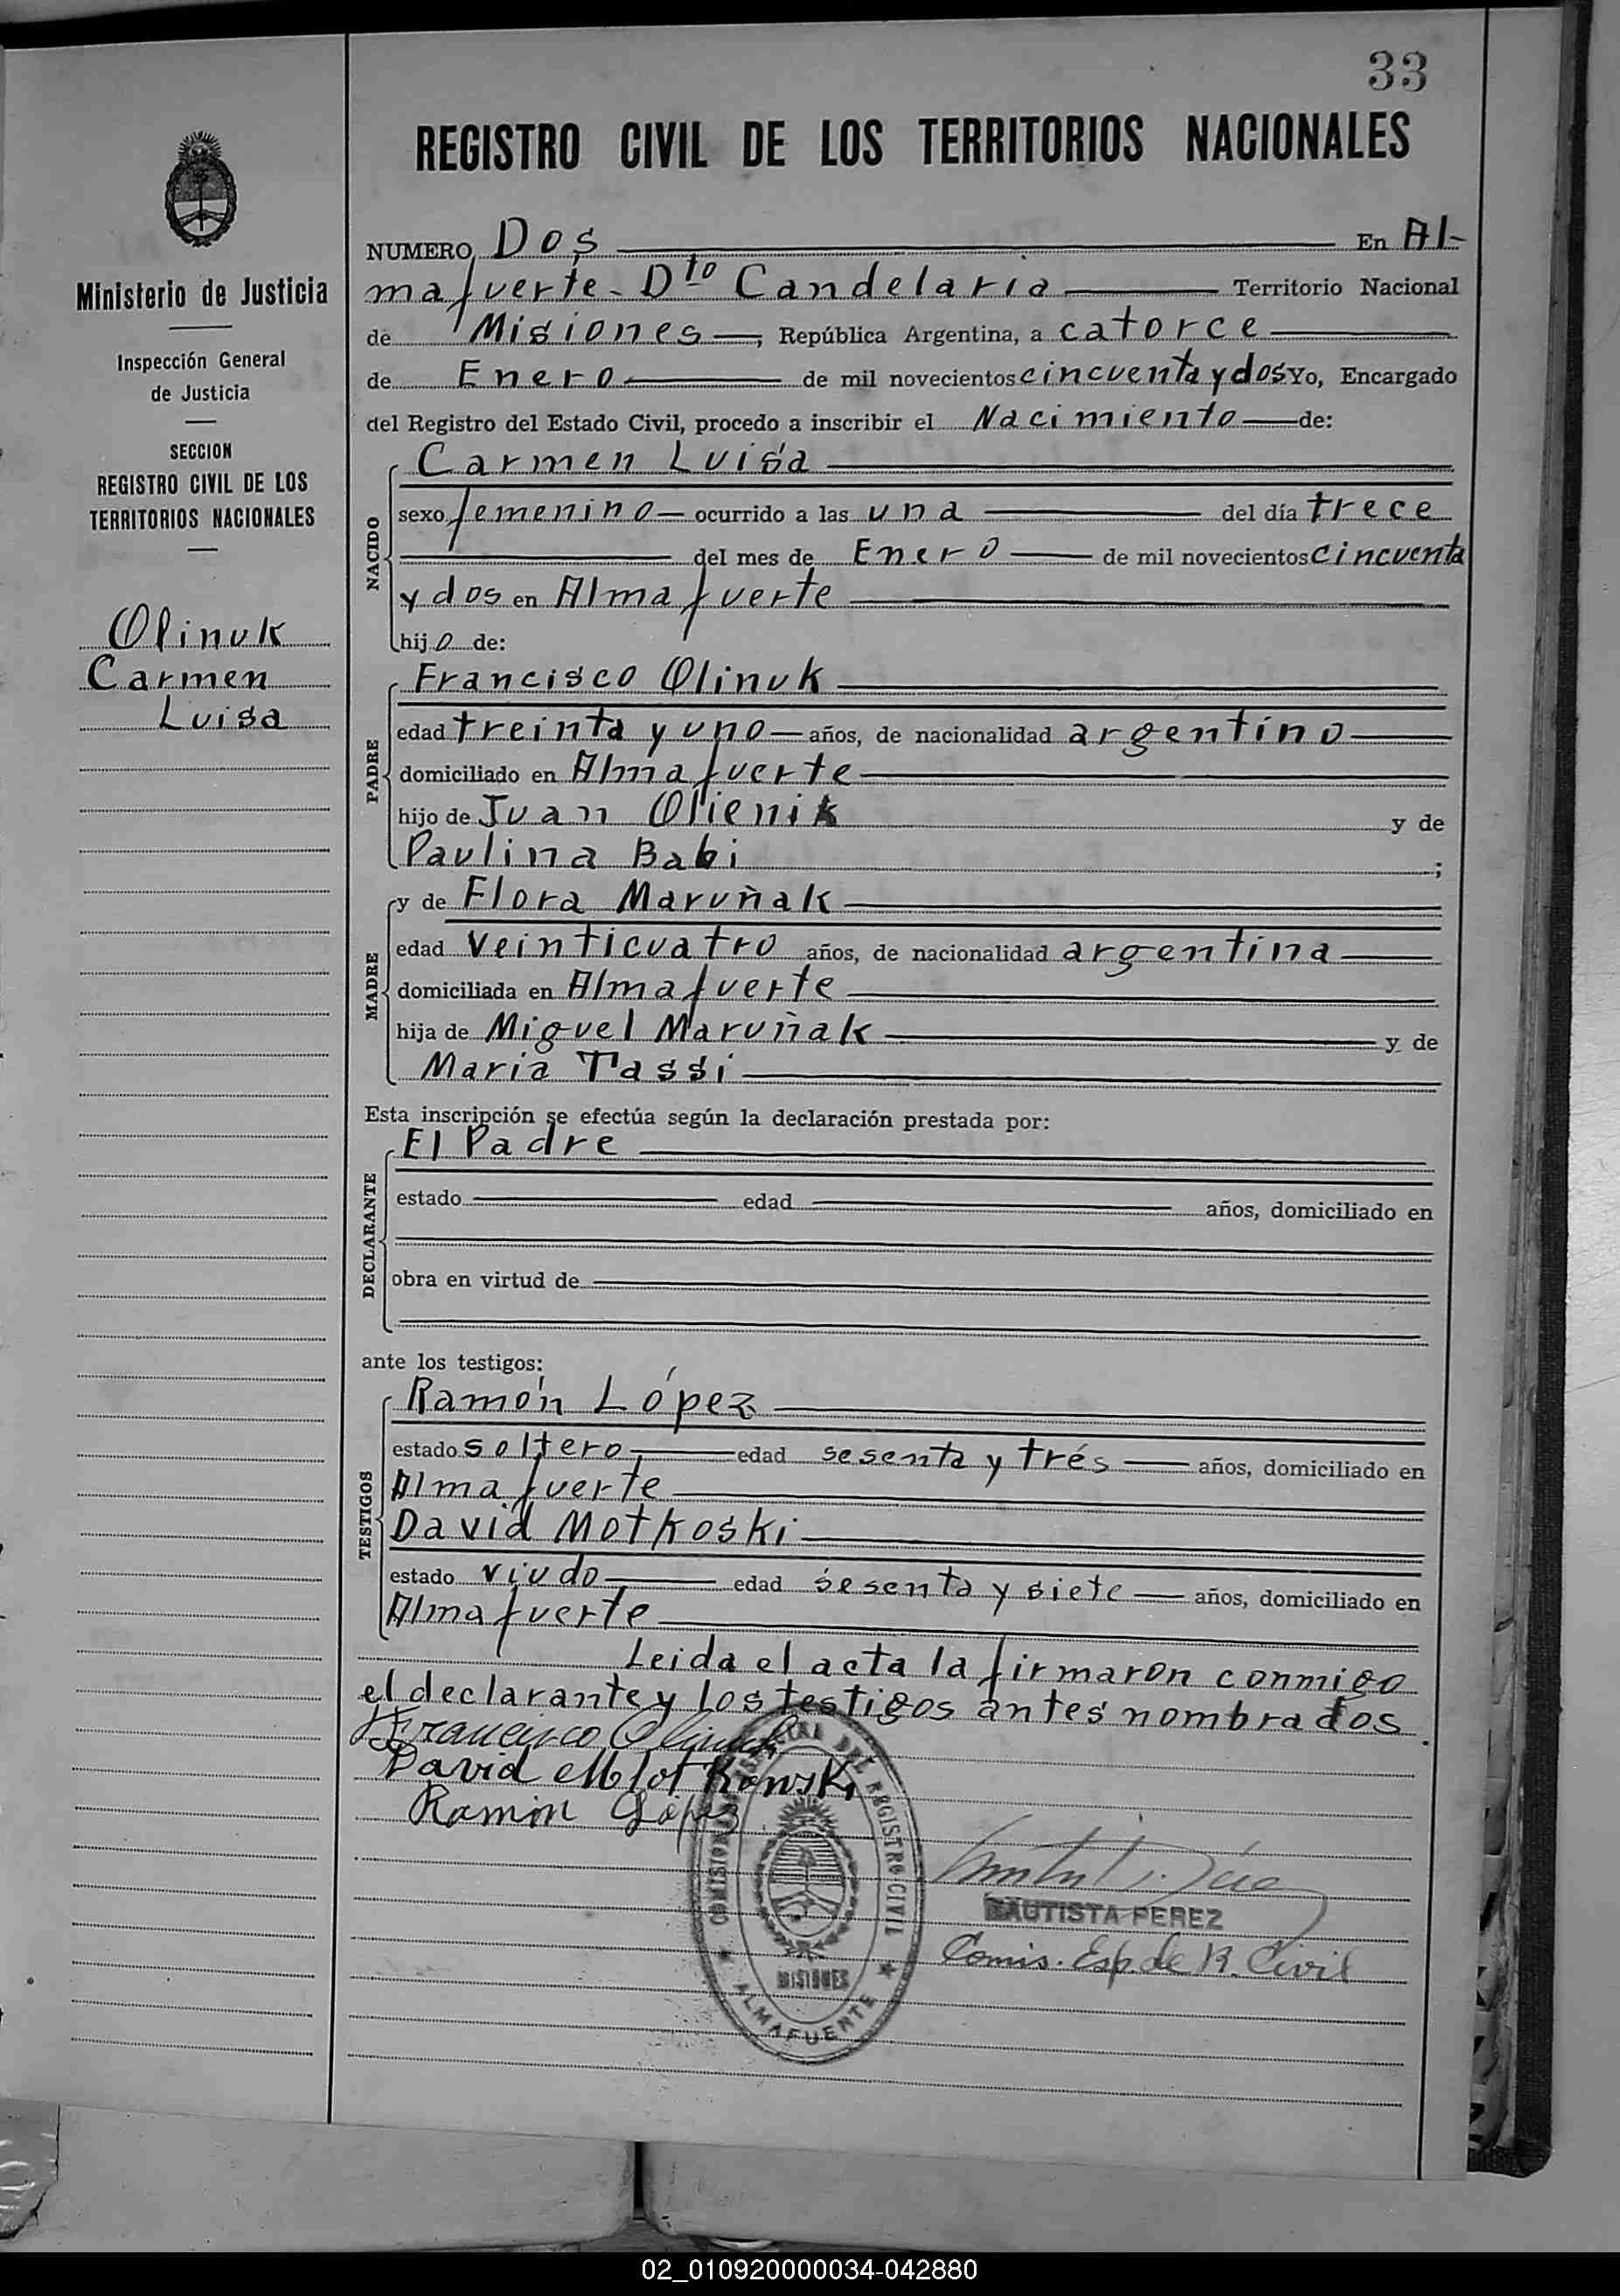 33
REGISTRO CIVIL DE LOS TERRITORIOS NACIONALES
Ministerio de Justicia
Inspección General
de Justicia
SECCION
REGISTRO CIVIL DE LOS
TERRITORIOS NACIONALES
Olinuk
Carmen
Luisa
NUMERO Dos En Al-
mafuerte - Dto Candelaria Territorio Nacional
de Misiones, República Argentina, a catorce
de Enero de mil novecientos cincuenta y dos Yo, Encargado
del Registro del Estado Civil, procedo a inscribir el Nacimiento de:
NACIDO
Carmen Luisa
sexo femenino ocurrido a las una del día trece
del mes de Enero de mil novecientos cincuenta
y dos en Almafuerte
hijo de:
PADRE
Francisco Olinuk
edad treinta y uno años, de nacionalidad argentino
domiciliado en Almafuerte
hijo de Juan Olienik y de
Paulina Babi ;
MADRE
y de Flora Maruñak
edad veinticuatro años, de nacionalidad argentina
domiciliada en Almafuerte
hija de Miguel Maruñak y de
Maria Tassi
Esta inscripción se efectúa según la declaración prestada por:
DECLARANTE
El Padre
estado edad años, domiciliado en
obra en virtud de
ante los testigos:
TESTIGOS
Ramón López
estado soltero edad sesenta y trés años, domiciliado en
Almafuerte
David Motkoski
estado viudo edad sesenta y siete años, domiciliado en
Almafuerte
Leida el acta la firmaron conmigo
el declarante y los testigos antes nombrados.
Francisco Olinuk
David Mlotkowski
Ramón López
REGISTRO CIVIL
MISIONES
ALMAFUENTE
BAUTISTA PEREZ
Comis. Esp. de R. Civil
02_010920000034-042880